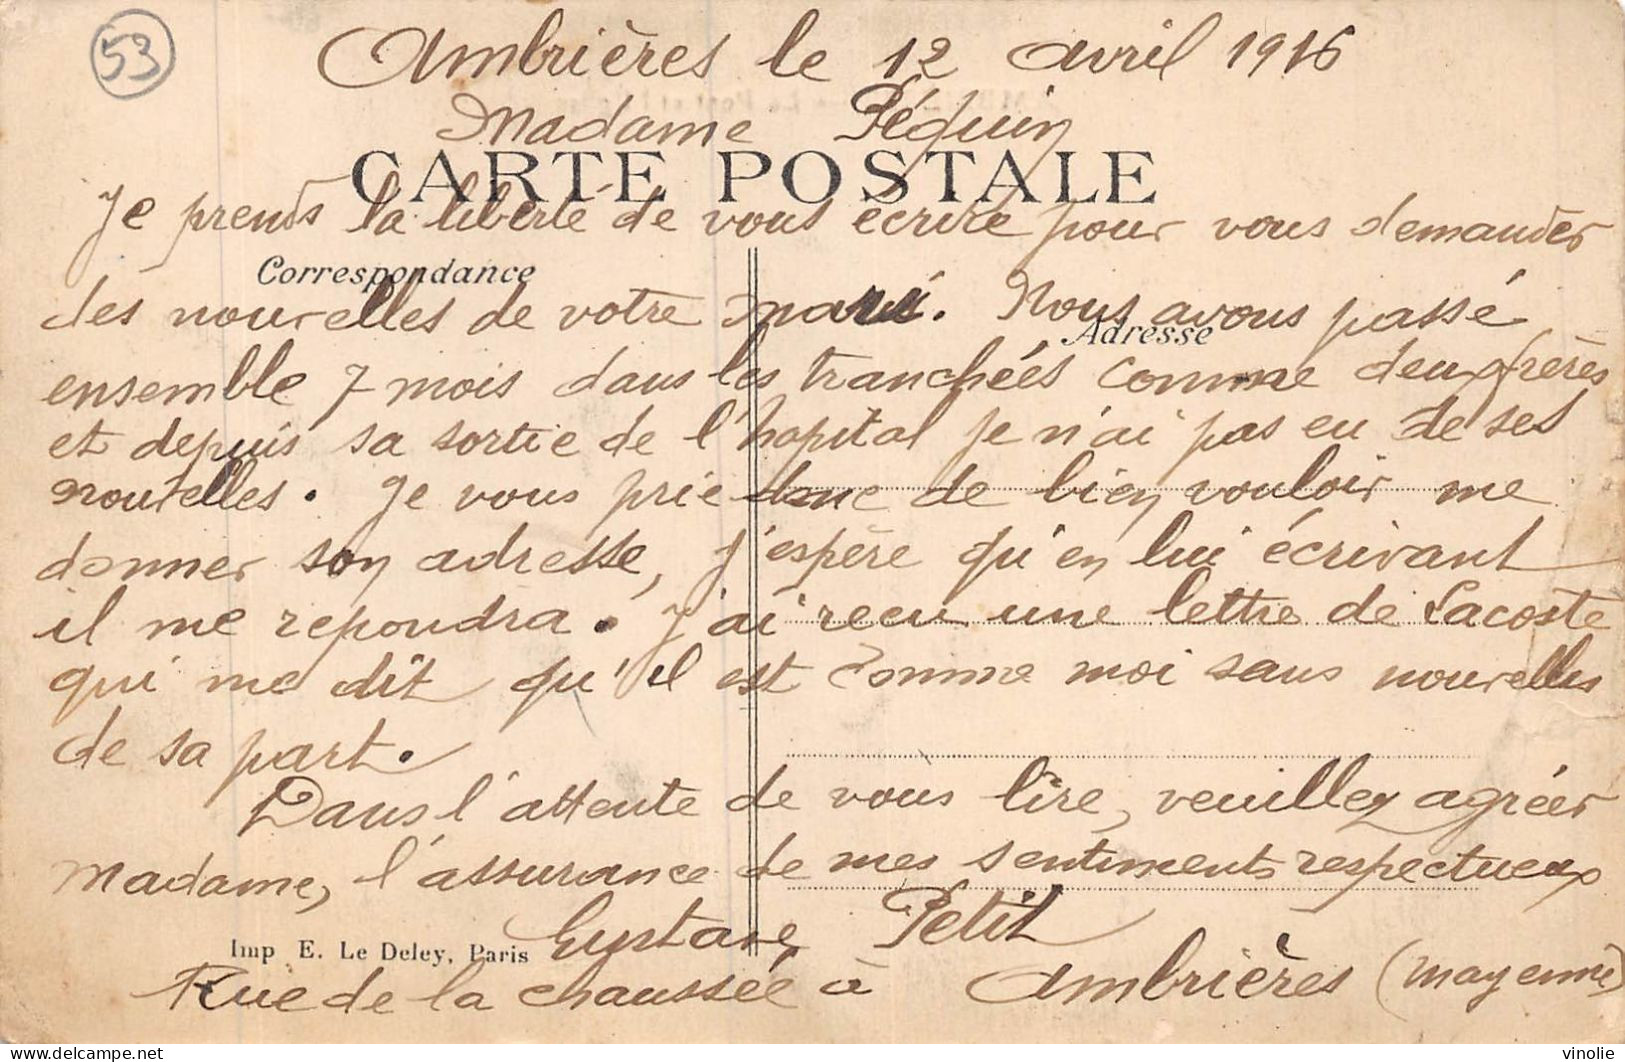 53
Ambrières le 12 avril 1916
Madame Péquin
CARTE POSTALE
Je prends la liberté de vous écrire pour vous demander
Correspondance
des nouvelles de votre mari. Nous avons passé
Adresse
ensemble 7 mois dans les tranchées comme deux frères
et depuis sa sortie de l'hopital je n'ai pas eu de ses
nouvelles. Je vous prie donc de bien vouloir me
donner son adresse, j'espère qu'en lui écrivant
il me repondra. J'ai recu une lettre de Lacoste
qui me dit qu'il est comme moi sans nouvelles
de sa part.
Dans l'attente de vous lire, veuillez agréer
madame, l'assurance de mes sentiments respectueux
Gustave Petit
Imp E. Le Deley, Paris
Rue de la chaussée à Ambrières (Mayenne)
vinolie